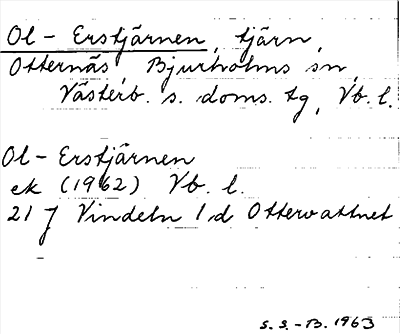 Ol-Erstjärnen, tjärn,
Otternäs, Bjurholms sn,
Västerb. s. doms. tg, Vb. l.
Ol-Erstjärnen
ek (1962) Vb. l.
21 J Vindeln 1d Ottervattnet
S. S.-B. 1963